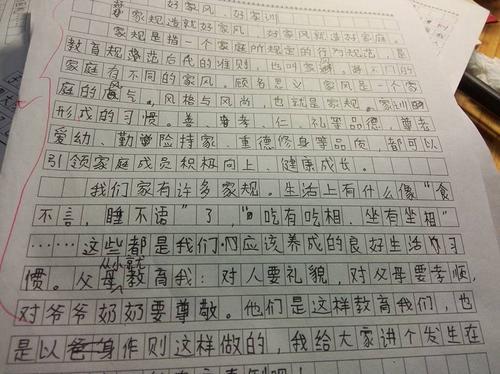 好家风 好家训
家规造就好家风，好家风就造好家庭。
家规是指一个家庭所规定的行为规范，是
教育规范后代的准则，也叫家
家庭有不同的家风。顾名思义，家风是一个家
庭的风气，风格与风尚，也就是家规、家训
形成的习惯。善、孝、仁、礼等品德，尊老
爱幼、勤俭持家、重德修身等品质，都可以
引领家庭成员积极向上、健康成长。
我们家有许多家规。生活上有什么像“食
不言，睡不语”了，“吃有吃相，坐有坐相”
……这些都是我们应该养成的良好生活习
惯。父母从小就教育我：对人要礼貌，对父母要孝顺，
对爷爷奶奶要尊敬。他们是这样教育我们，也
是以身作则这样做的，我给大家讲个发生在